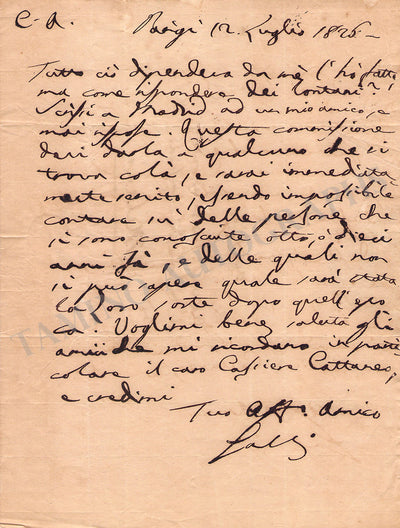 C. A. Parigi 12 Luglio 1826 –
Tutto ciò dipendeva da mè l'hò fatto,
ma come rispondere dei lontani?
Scrissi a Madrid ad un mio amico, e
mai rispose. Questa commissione
devi darla a qualcuno che si
trova colà, e sarai immediata
mente servito, essendo impossibile
contare sù delle persone che
si sono conosciute otto, ò dieci
anni fà, e delle quali non
si può sapere quale sarà stata
la loro sorte dopo quell'epo
ca. Voglimi bene, saluta gli
amici che mi ricordano in parti
colare il caro Cassiere Cattaneo,
e credimi
Tuo Aff. Amico
TAMINO AUTOGRAPHS